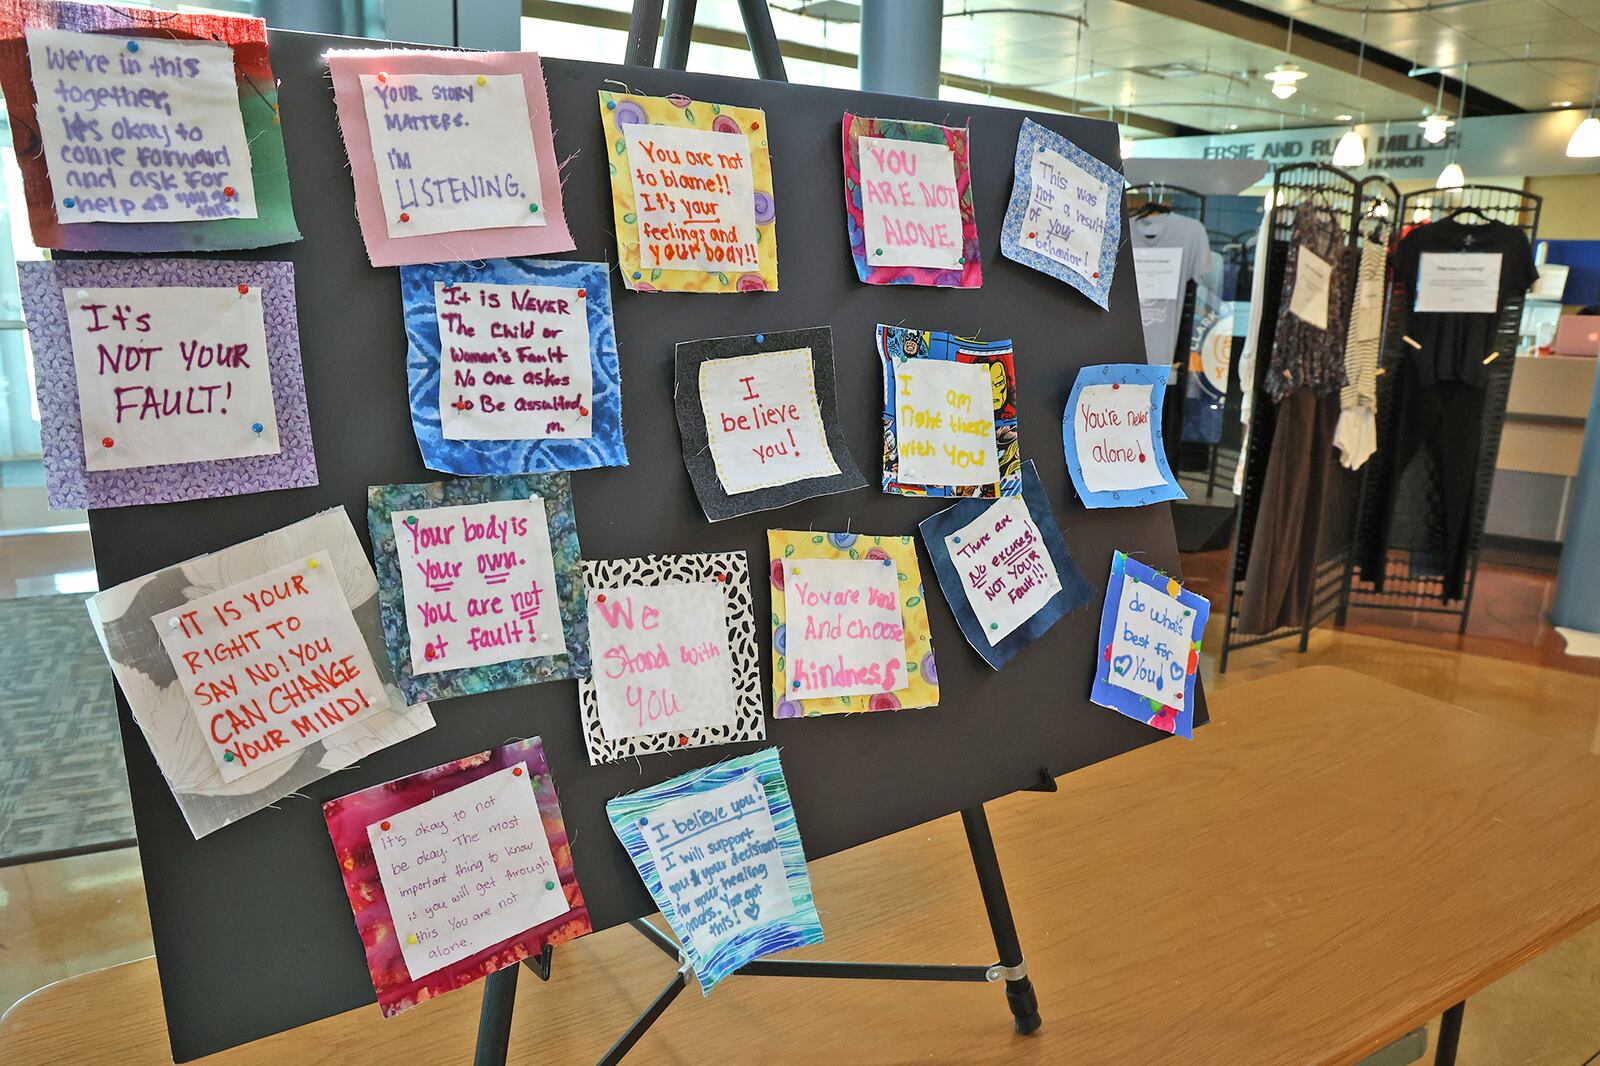 We're in this
together,
it's okay to
come forward
and ask for
help as you
this.
YOUR STORY
MATTERS.
I'M
LISTENING.
You are not
to blame!!
It's your
feelings and
your body!!
YOU
ARE NOT
ALONE.
This was
not a result
of your
behavior!
It's
NOT YOUR
FAULT!
It is NEVER
The Child or
Women's Fault
No One askes
to Be Assulted
m.
I
believe
you!
I am
right there
with you
You're never
alone!
IT IS YOUR
RIGHT TO
SAY NO! YOU
CAN CHANGE
YOUR MIND!
Your body is
your own.
You are not
at fault!
We
Stand with
YOU
You are kind
And choose
kindness
There are
NO excuses!
NOT YOUR
Fault!!!
do what's
best for
You!
It's okay to not
be okay. The most
important thing to know
is you will get through
this You are not
alone.
I believe you!
I will support
you & your decisions
for your healing
process. You got
this!
ERSIE AND RUTH MILLER
HONOR